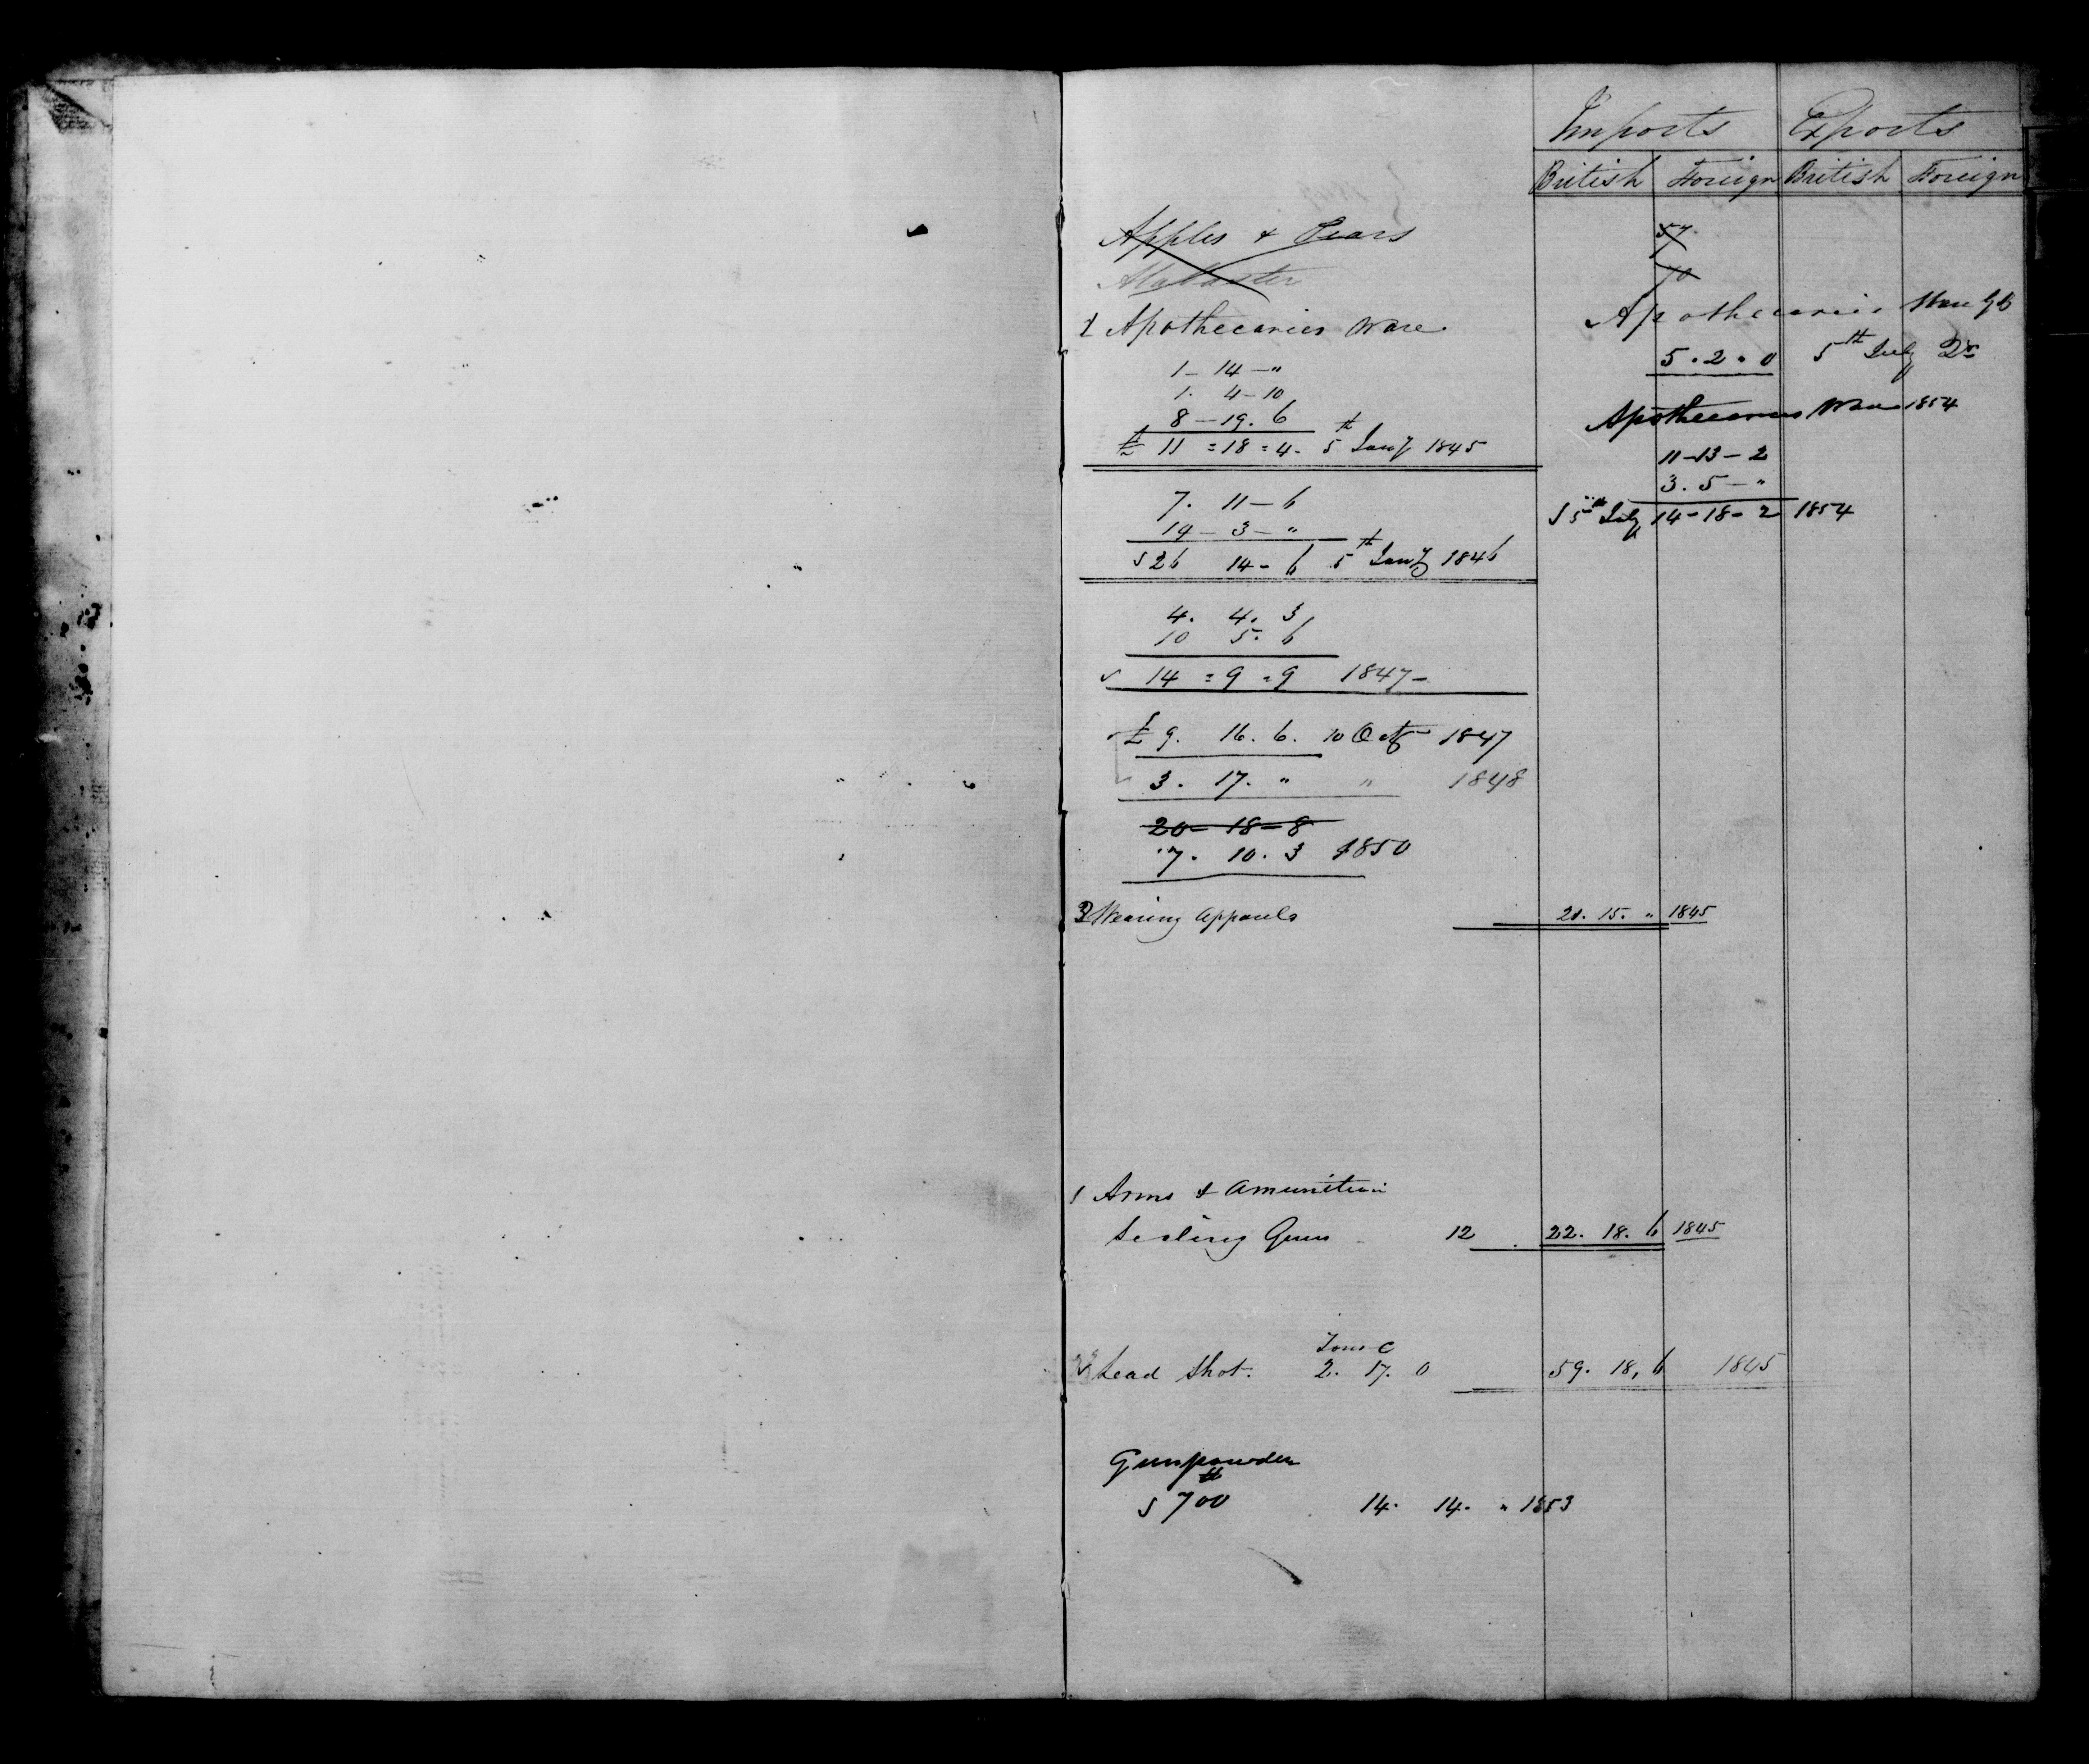 Imports Exports
British Foreign British Foreign
Apples & Pears 57
Alabaster 70
1 Apothecaries Ware
1 - 14 - "
1. 4 - 10
8 - 19. 6
£ 11 = 18 = 4. 5th Jany 1845
7. 11 - 6
19 - 3 - "
26 14 - 6 5th Jany 1846
4. 4. 3
10 5. 6
14 = 9 = 9 1847 -
£ 9. 16. 6. 10 Octr 1847
3. 17. " " 1848
20 - 18 - 8
7. 10. 3 1850
Apothecaries Ware
5 . 2 . 0 5th July
Apothecaries Ware 1854
11 - 13 - 2
3. 5 - "
5th July 14 - 18 - 2 1854
2 Wearing Apparels 21. 15. " 1845
1 Arms & Amunition
Sealing Guns 12 22. 18. 6 1845
Tons C
Lead Shot. 2. 17. 0 59. 18. 6 1845
Gunpowder
lb
700 14. 14. " 1853